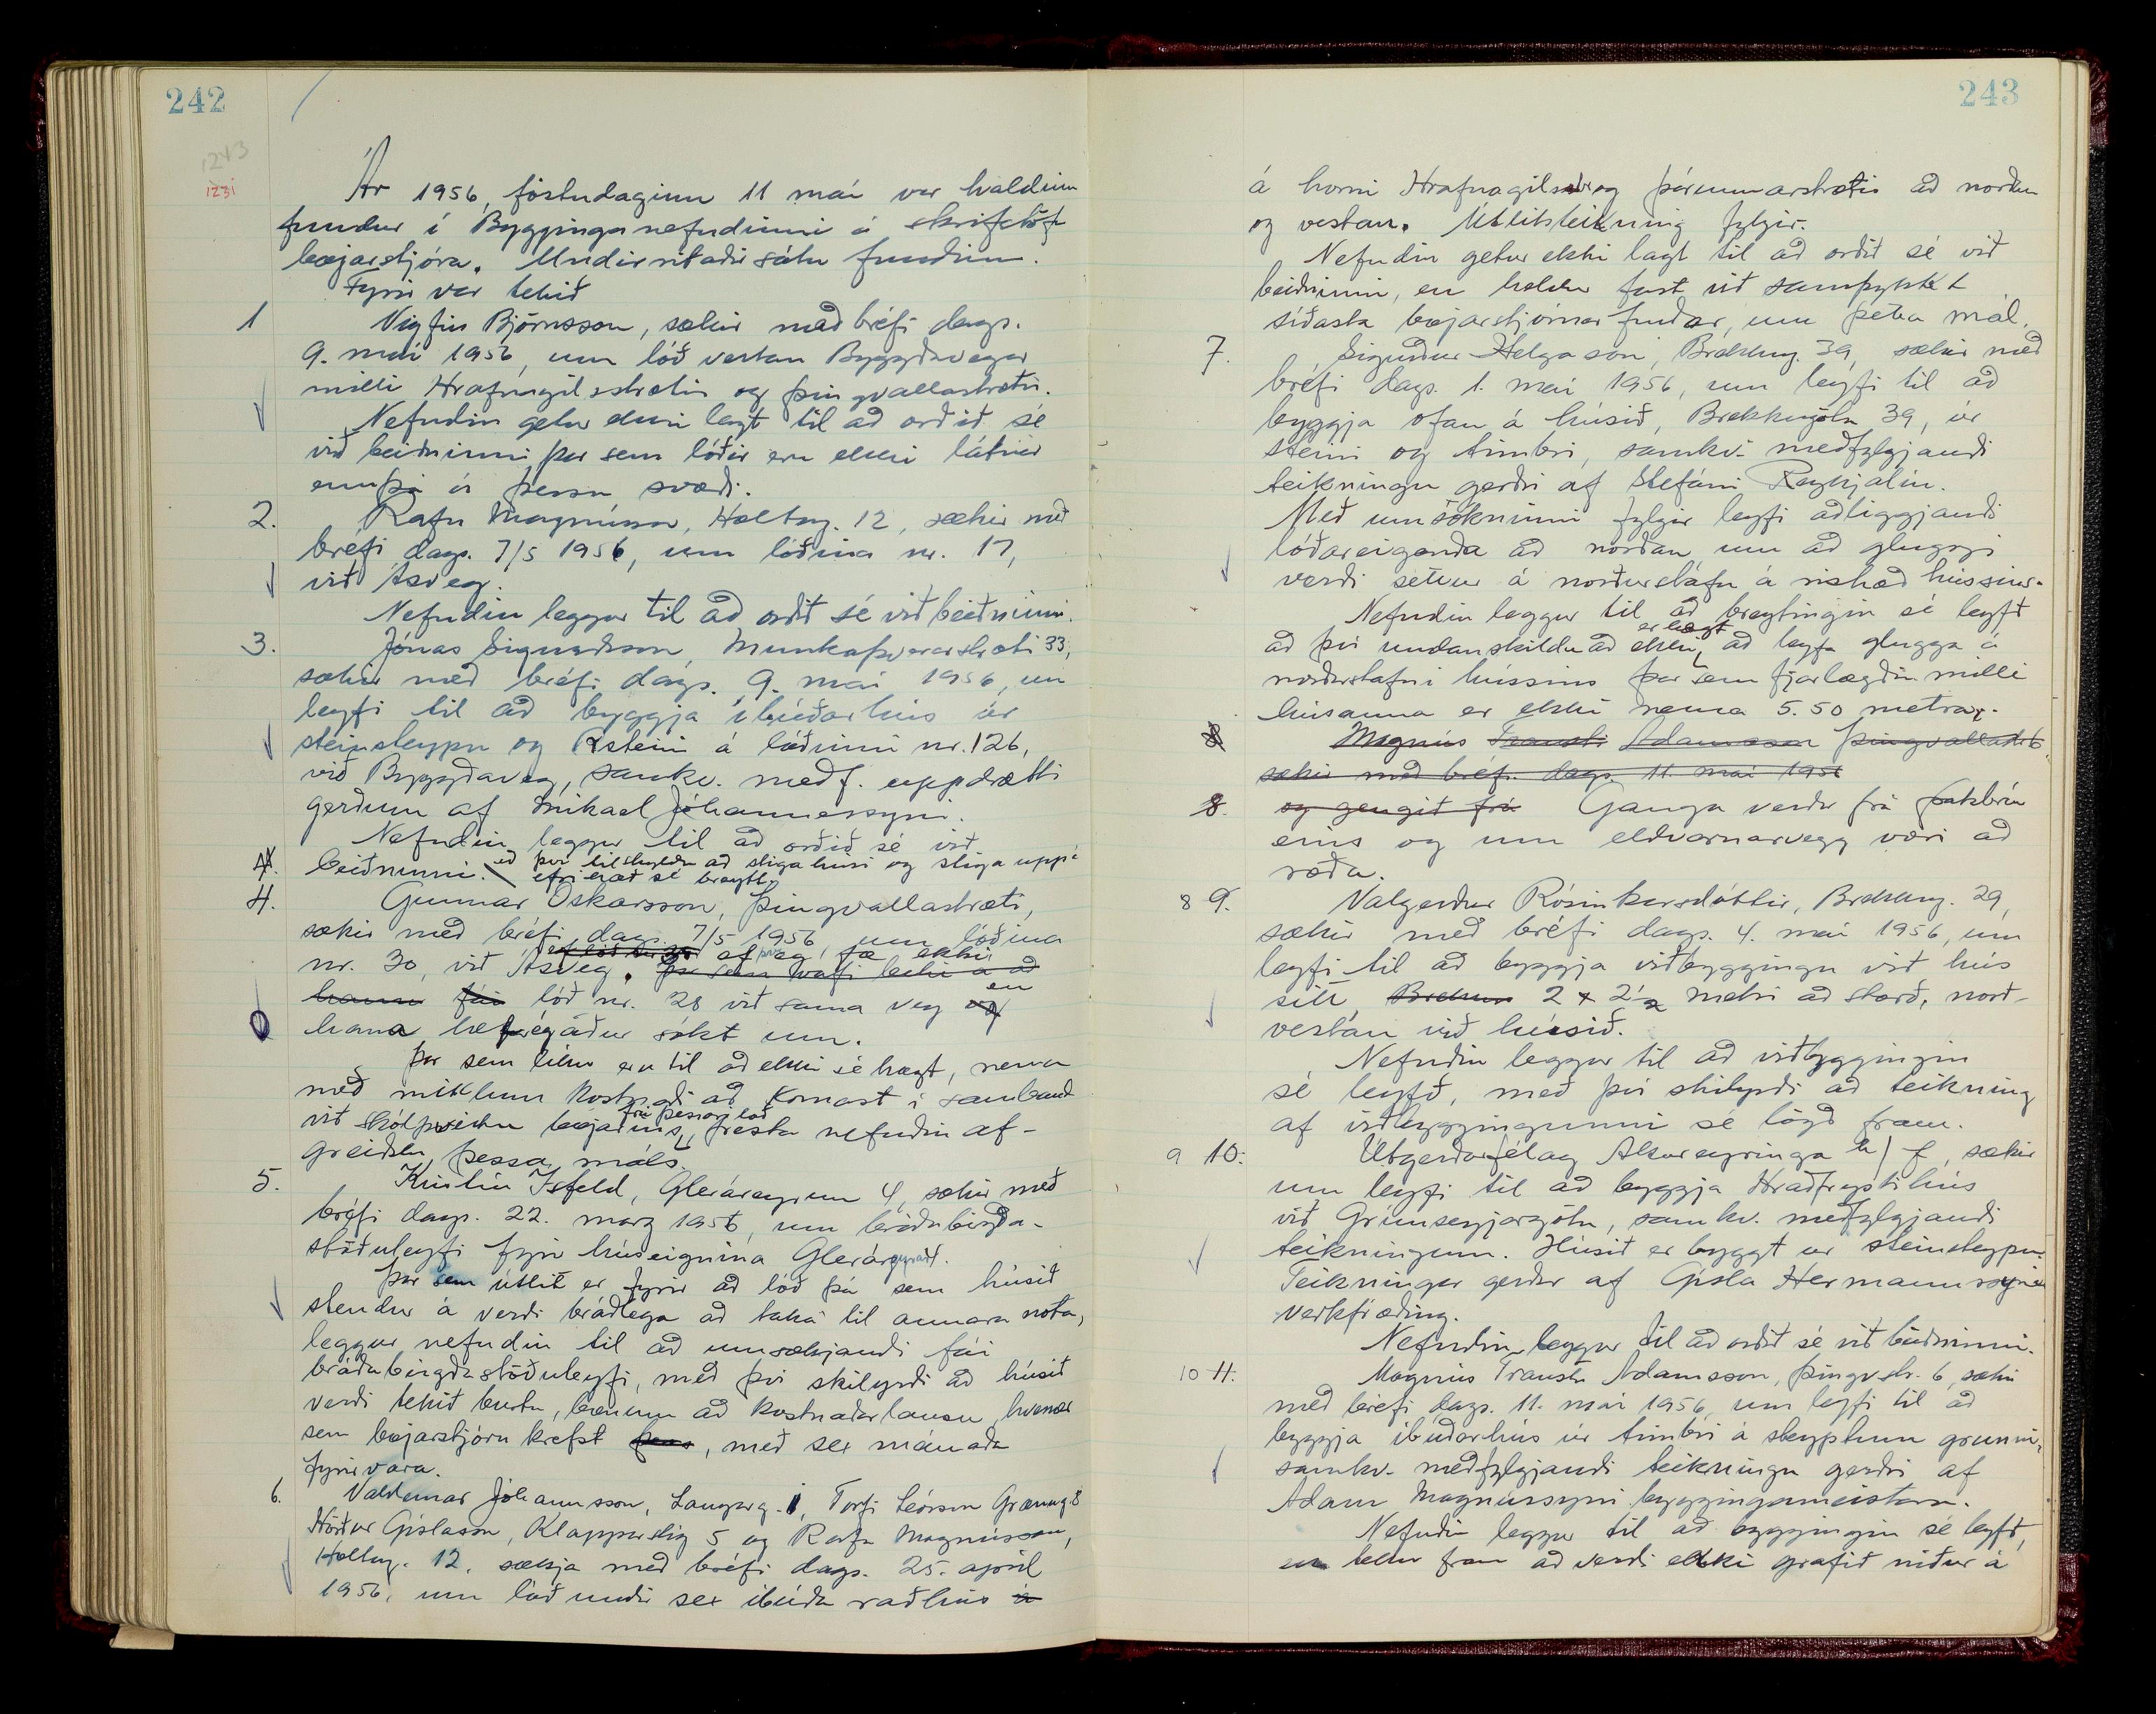 242
1243
1231
Ár 1956, föstudaginn 11 maí var haldinn
fundur í Bygginganefndinni á skrifstofu
bæjarstjóra. Undirritaðir sátu fundinn.
Fyrir var tekið
1 Vigfús Björnsson, sækir með bréfi dags.
9. maí 1956, um lóð vestan Byggðavegar
milli Hrafnagilsstrætis og Þingvallastrætis.
Nefndin getur ekki lagt til að orðið sé
við beiðninni þar sem lóðir eru ekki látnar
ennþá á þessu svæði.
2. Rafn Magnússon, Holtag. 12, sækir með
bréfi dags. 7/5 1956, um lóðina nr. 17,
við Ásveg.
Nefndin leggur til að orðið sé við beiðninni.
3. Jónas Sigurðsson, Munkaþverárstræti 33,
sækir með bréfi dags. 9. maí 1956, um
leyfi til að byggja íbúðarhús úr
steinsteypu og Rsteini á lóðinni nr. 126,
við Byggðaveg, samkv. meðf. uppdrætti
gerðum af Mikael Jóhannessyni.
Nefndin leggur til að orðið sé við
4. beiðninni. að því tilskyldu að stigahúsi og stiga uppá
efri hæð sé breytt.
4. Gunnar Óskarsson, Þingvallastræti,
sækir með bréfi dags. 7/5 1956 um lóðina
ef ég fæ ekki
nr. 30, við Ásveg. þar sem vafi leiki á að
hann fái lóð nr. 28 við sama veg og en
hana hef ég áður sótt um.
Þar sem líkur eru til að ekki sé hægt, nema
með miklum kostnaði að komast í samband
við skólpveitu bæjarins, frá þessari lóð frestar nefndin af-
greiðslu þessa máls.
5. Kristín Ísfeld, Gleráreyrum 4, sækir með
bréfi dags. 22. marz 1956, um bráðabirgða-
stöðuleyfi fyrir húseignina Gleráreyrar 4.
Þar sem útlit er fyrir að lóð þá sem húsið
stendur á verði bráðlega að taka til annara nota,
leggur nefndin til að umsækjandi fái
bráðabirgðastöðuleyfi, með því skilyrði að húsið
verði tekið burtu, bænum að kostnaðarlausu, hvenær
sem bæjarstjórn krefst þess, með sex mánaða
fyrirvara.
6. Valdemar Jóhannsson, Langag. 1, Torfi Leósson Grænug 8
Hörður Gíslason, Klapparstíg 5 og Rafn Magnússon,
Holtag. 12. sækja með bréfi dags. 25. apríl
1956, um lóð undir sex íbúða raðhús á
243
á horni Hrafnagilsstr. og Þórunnarstrætis að norðan
og vestan. Útlitsteikning fylgir.
Nefndin getur ekki lagt til að orðið sé við
beiðninni, en heldur fast við samþykkt
síðasta bæjarstjórnarfundar, um þetta mál.
7. Sigurður Helgason, Brekkug. 39, sækir með
bréfi dags. 1. maí 1956, um leyfi til að
byggja ofan á húsið, Brekkugötu 39, úr
steini og timbri, samkv. meðfylgjandi
teikningu gerðri af Stefáni Reykjalín.
Með umsókninni fylgir leyfi aðliggjandi
lóðareiganda að norðan um að gluggi
verði settur á norðurstafn á rishæð hússins.
Nefndin leggur til að breytingin sé leyfð
að því undanskildu að ekki er hægt að leyfa glugga á
norðurstafni hússins þar sem fjarlægðin milli
húsanna er ekki nema 5.50 metrar.
8 Magnús Trausti Adamsson Þingvallastr 6
sækir með bréfi dags. 11. maí 1956
8. og gengið frá Ganga verður frá þakbrún
eins og um eldvarnarvegg væri að
ræða.
8 9. Valgerður Rósinkarsdóttir, Brekkug. 29,
sækir með bréfi dags. 4. maí 1956, um
leyfi til að byggja viðbyggingu við hús
sitt, 2 x 2½ metri að stærð, norð-
vestan við húsið.
Nefndin leggur til að viðbyggingin
sé leyfð, með því skilyrði að teikning
af viðbyggingunni sé lögð fram.
9 10. Útgerðarfélag Akureyringa h/f, sækir
um leyfi til að byggja Hraðfrystihús
við Grímseyjargötu, samkv. meðfylgjandi
teikningum. Húsið er byggt úr steinsteypu.
Teikningar gerðar af Gísla Hermannssyni
verkfræðing.
Nefndin leggur til að orðið sé við beiðninni.
10 11. Magnús Trausti Adamsson, Þingv.str. 6, sækir
með bréfi dags. 11. maí 1956, um leyfi til að
byggja íbúðarhús úr timbri á steyptum grunni,
samkv. meðfylgjandi teikningu gerðri af
Adam Magnússyni byggingameistara.
Nefndin leggur til að byggingin sé leyfð,
en tekur fram að verði ekki grafið niður á